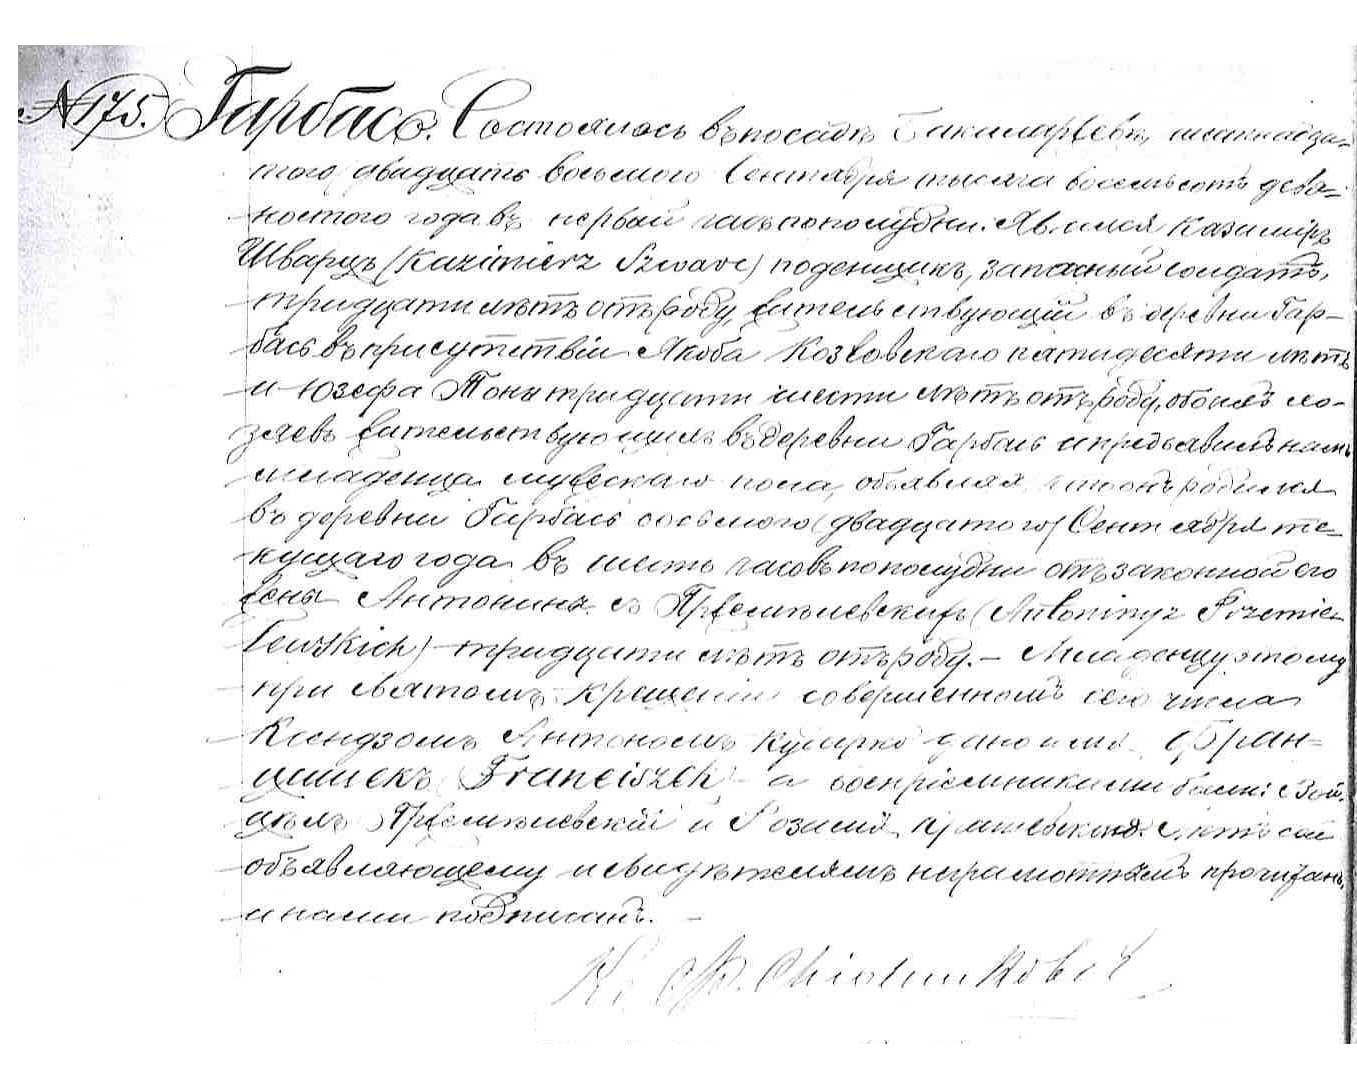 № 175. Гарбасъ. Состоялось въ посадѣ Бакаларжевѣ, шестнадца-
таго (двадцать восьмого) Сентября тысяча восемьсотъ девя-
ностого года въ первый часъ пополудни. Явился Казимиръ
Шварцъ (Kazimierz Szwarc) поденщикъ, запасный солдатъ,
тридцати лѣтъ отъ роду, жительствующій въ деревни Гар-
басъ въ присутствіи Якоба Козловскаго пятидесяти лѣтъ
и Юзефа Тоны тридцати шести лѣтъ отъ роду, обоихъ хо-
зяевъ жительствующихъ въ деревни Гарбасъ и предъявилъ намъ
младенца мужескаго пола, объявляя, что онъ родился
въ деревни Гарбасъ восьмого (двадцатого) Сентября те-
кущаго года въ шесть часовъ пополудни отъ законной его
жены Антонины съ Пржемѣневскихъ (Antoniny z Przemie-
lewskich) тридцати лѣтъ отъ роду. — Младенцу этому
при святомъ крещеніи совершенномъ сего числа
Ксендзомъ Антономъ дано имя Фран-
цишекъ (Franciszek) а воспріемниками были: Вой-
цѣхъ Пржемѣневскій и Розалія сей
объявляющему и свидѣтелямъ неграмотнымъ прочитанъ,
и нами подписанъ. —
К.